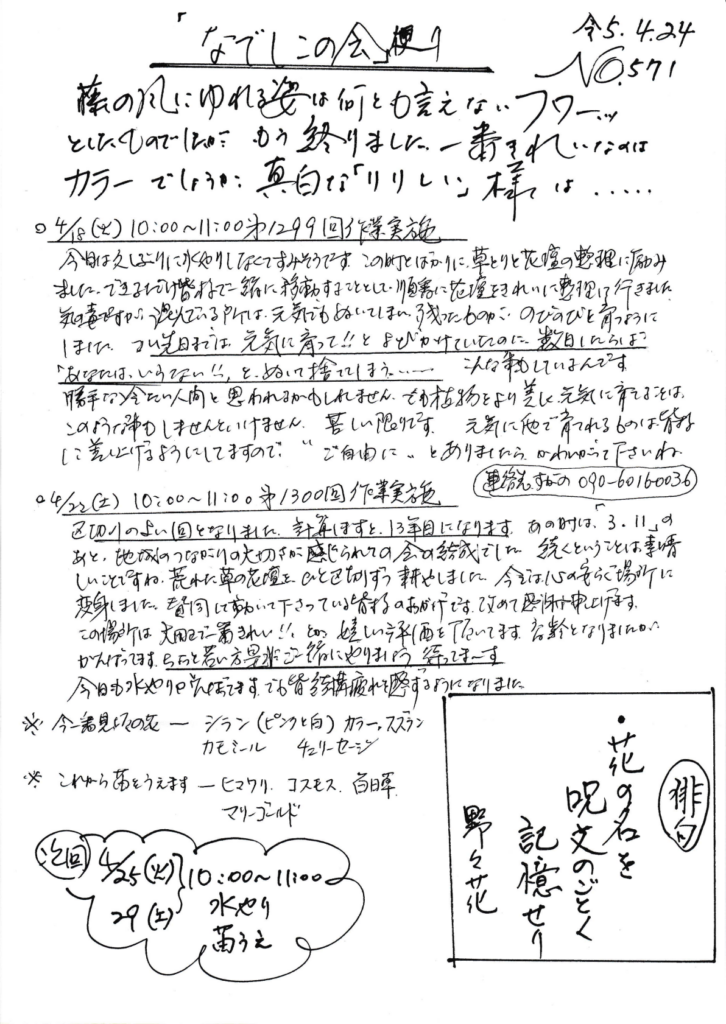 「なでしこの会」便り
令5.4.24
NO.571
藤の風にゆれる姿は何とも言えないフワーッ
としたものでしたが、もう終りました。一番きれいなのは
カラーでしょうか、真白な「りりしい」様では.....
○4/18(火)10:00~11:00第1299回作業実施
今日は久しぶりに水やりしなくてすみそうです。この時とばかりに、草とりと花壇の整理に励み
ました。できるだけ皆様で一緒に移動することとして順番に花壇をきれいに整理して行きました
気の毒ですが、混んでいる所は、元気でもぬいてしまい残ったものが、のびのびと育つように
しました。つい先日までは、元気に育って!!とよびかけていたのに、数日したらば
「あなたは、いらない!!」と、ぬいて捨てしまう...... こんな事もしているんです
勝手な冷たい人間と思われるかもしれません。でも植物をより美しく元気に育てることは、
このような事もしませんといけません。苦しい限りです。 元気に他で育てれるものは皆様
に差し上げるようにしてますので、"ご自由に"とありましたら、かわいがって下さいね
連絡先すがの 090-6016-0036
○4/22(土)10:00~11:00第1300回作業実施
区切りのよい回となりました。計算しますと、13年目になります。あの時は、「3.11」の
あと、地域のつながりの大切さが感じられての会の結成でした。続くということは素晴
しいことですね。荒れた草の花壇を、ひと区切ずつ耕やしました。今では心の安らぐ場所に
変身しました。賛同して動いて下さっている皆様のおかげです。改めて感謝申し上げます。
この場所は大田で一番きれい!!とか 嬉しい評価を頂いてます。高齢となりましたが、
がんばってます。ちょっと若い方是非ご一緒にやりましょう 待ってま～す
今日も水やりがんばってます。でも皆結構疲れを感ずるようになりました
※ 今一番見頃の花 ― シラン(ピンクと白) カラー、スズラン
カモミール チェリーセージ
※ これから苗をうえます ― ヒマワリ、コスモス、百日草
マリーゴールド
次回 4/25(火)
29(土)
10:00~11:00
水やり
苗うえ
俳句
・花の名を
呪文のごとく
記憶せり
野々花